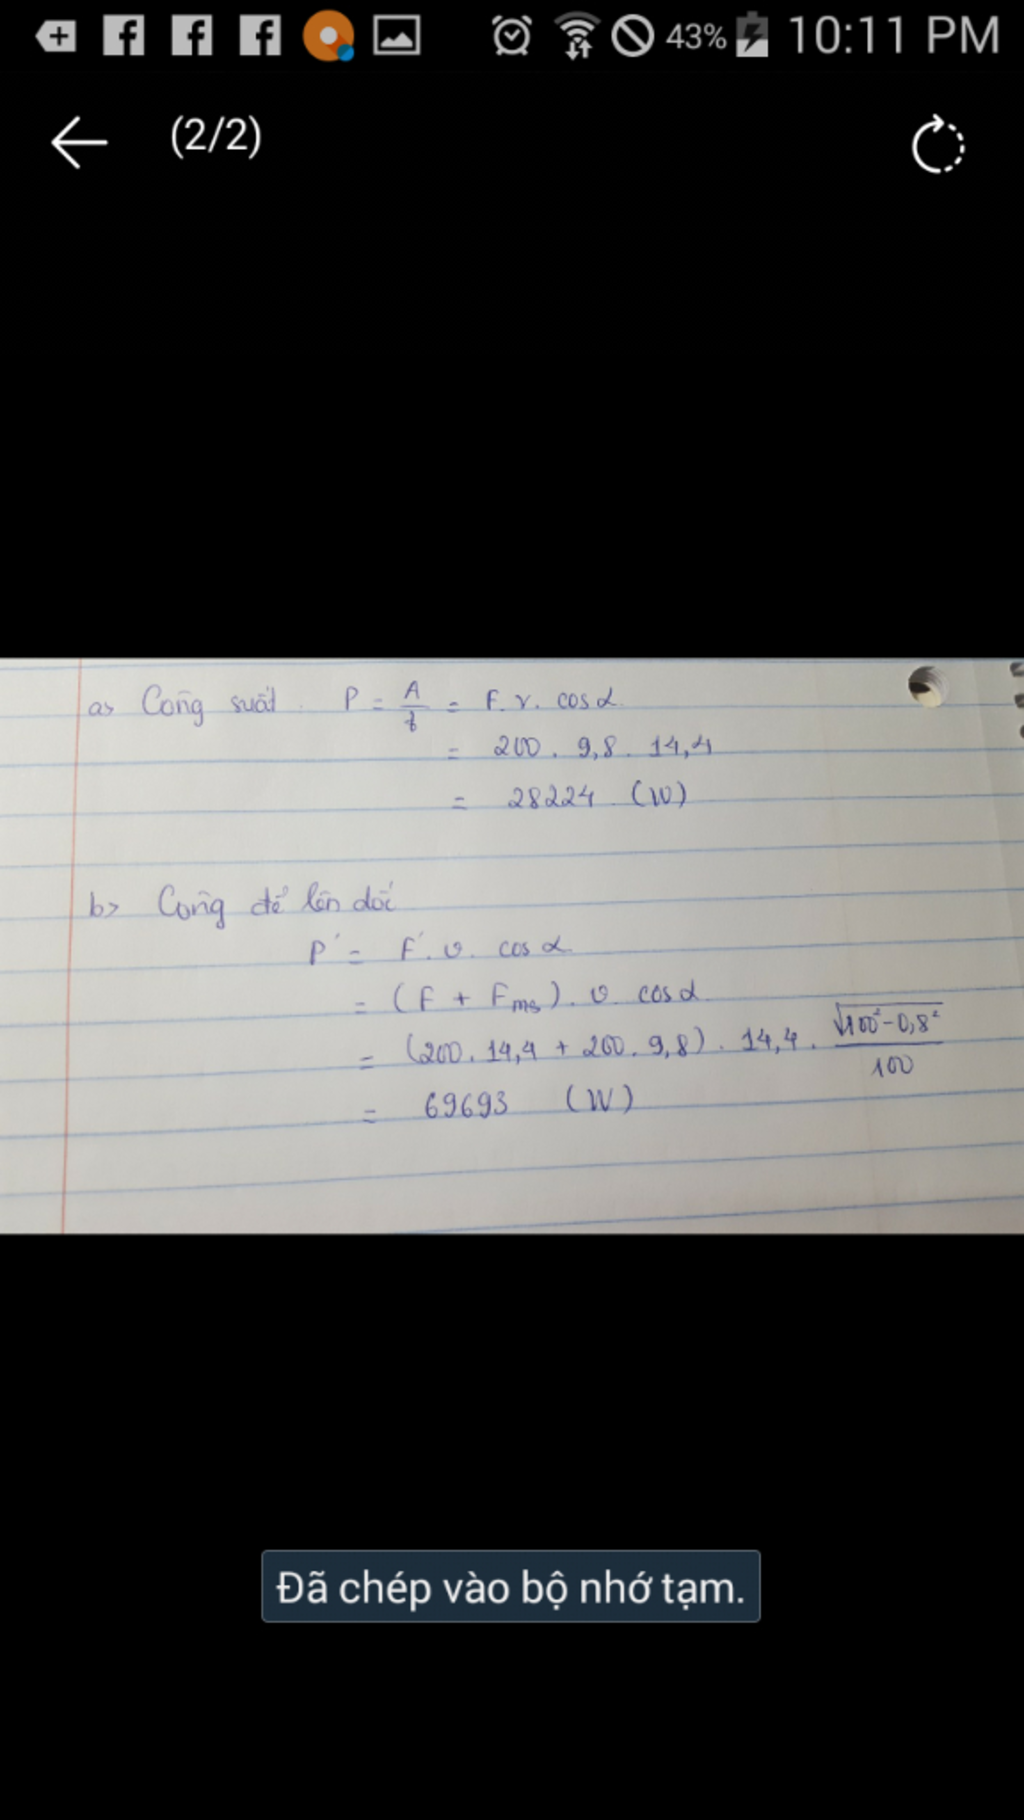 43% 10:11 PM
(2/2)
a> Công suất. P = A/t = F.v. cosα
= 200. 9,8. 14,4
= 28224 (W)
b> Công để lên dốc
P' = F'. v. cosα
= (F + Fms). v cosα
= (200. 14,4 + 200. 9,8). 14,4. √100²-0,8²/100
= 69693 (W)
Đã chép vào bộ nhớ tạm.